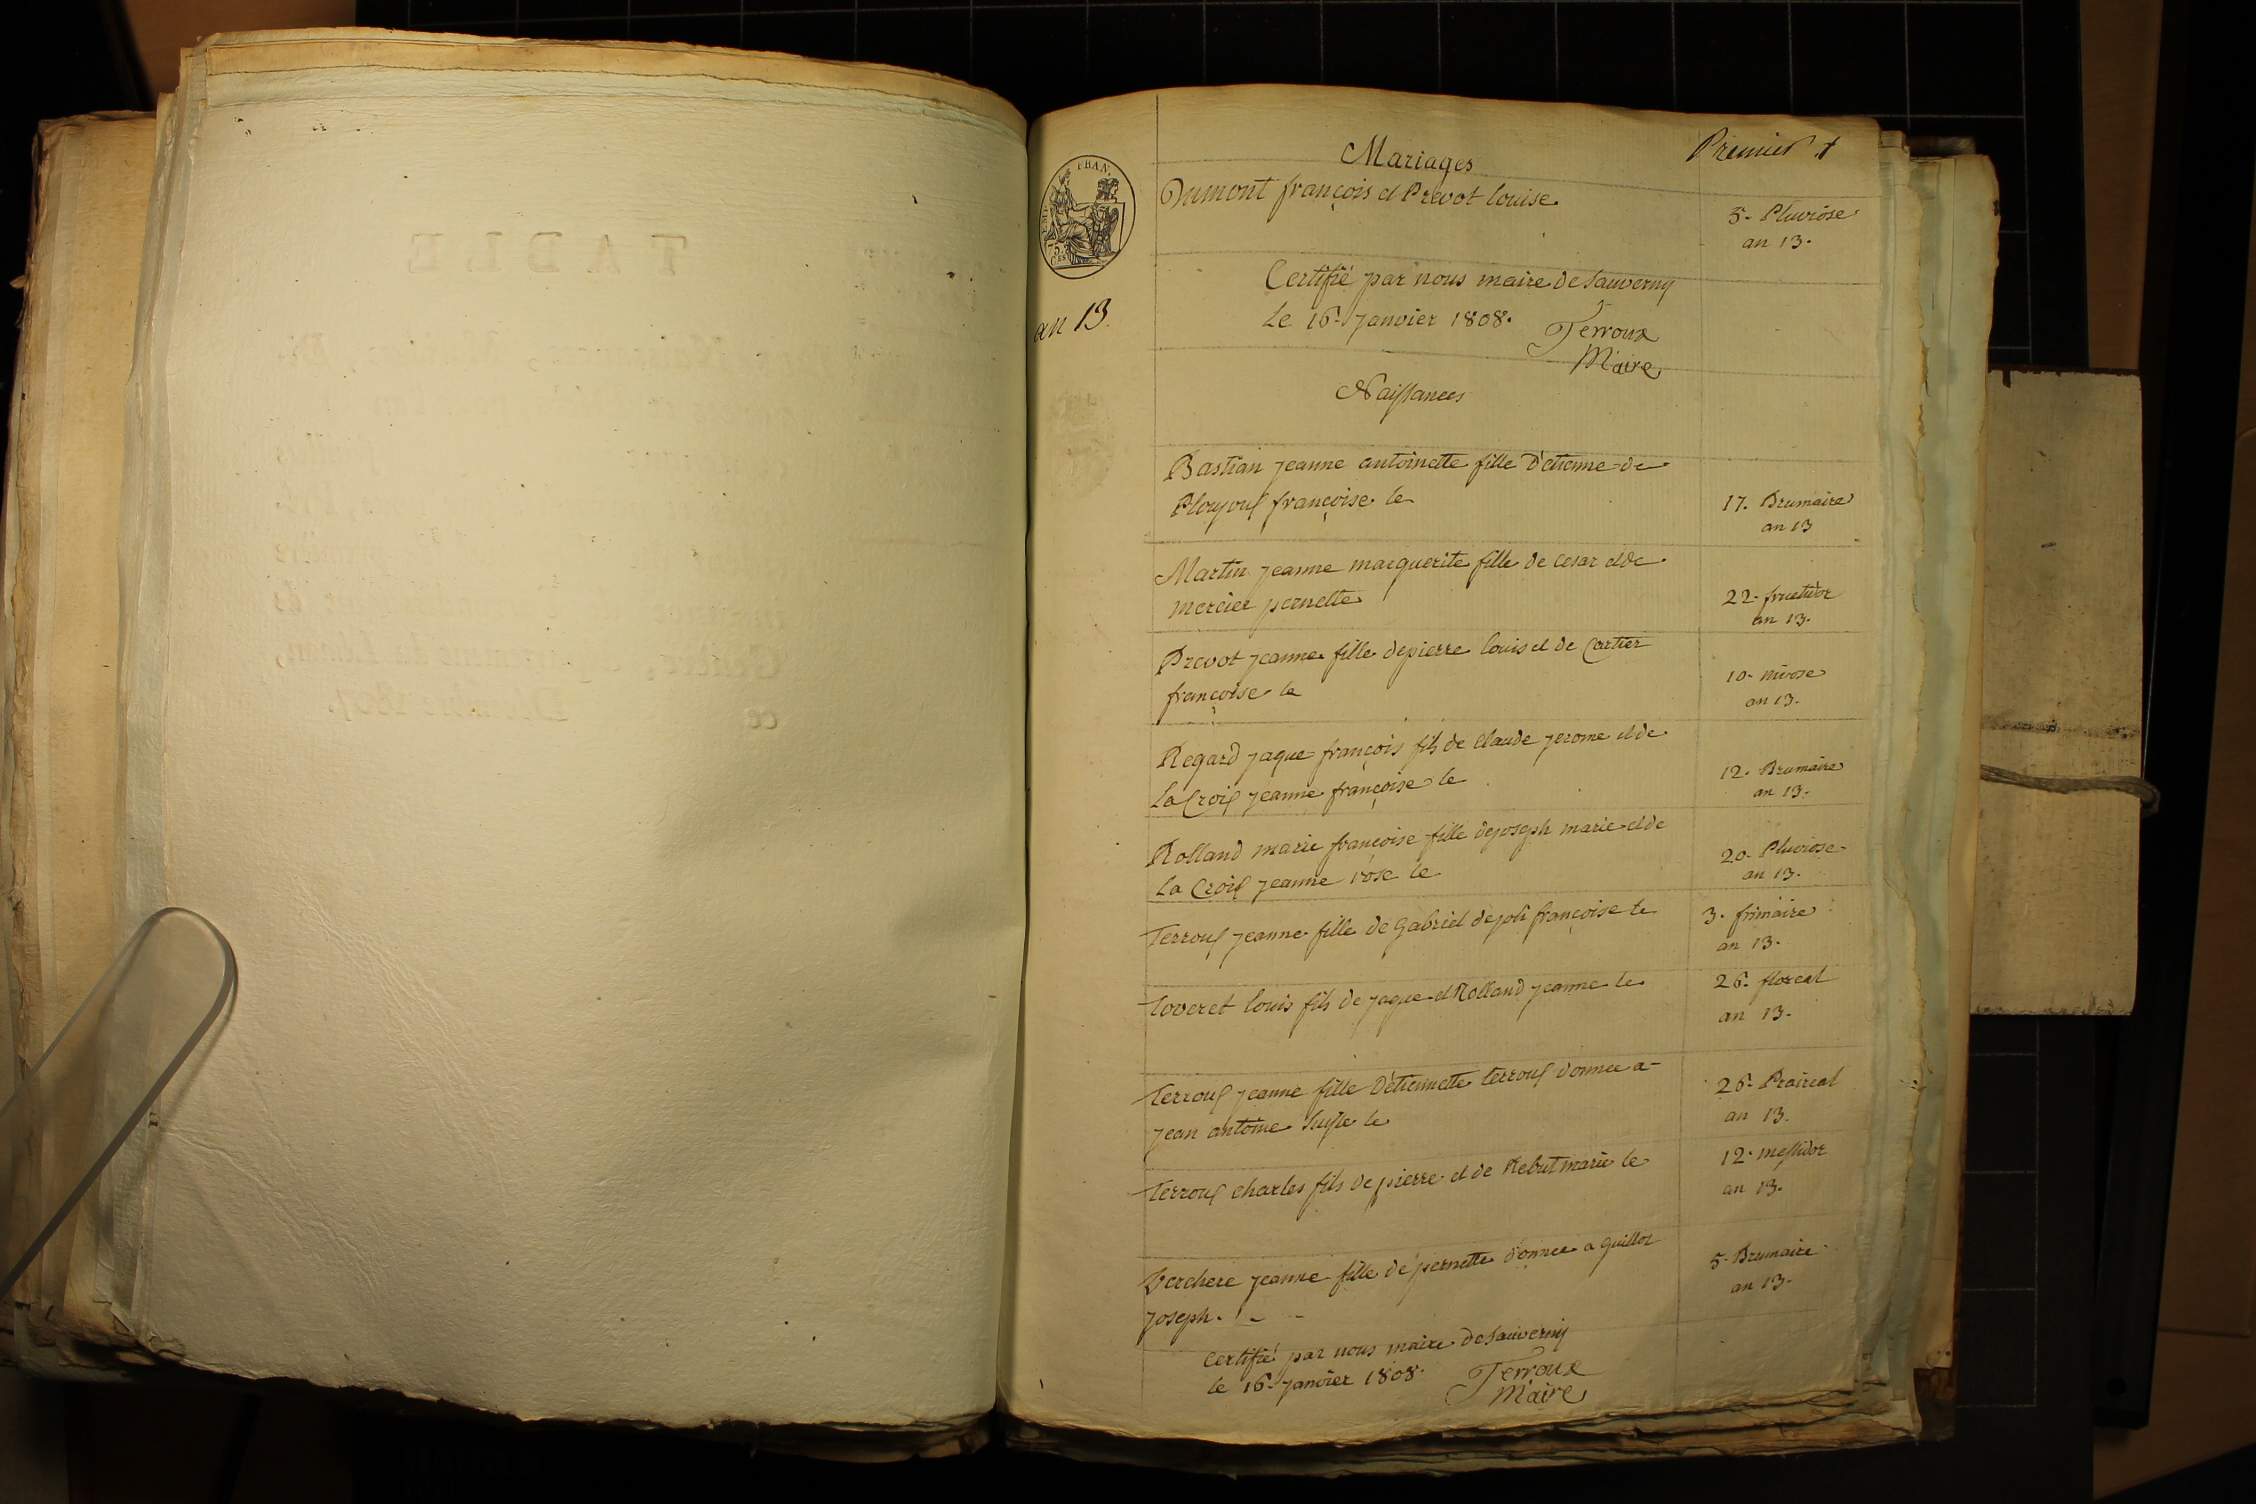 Mariages
Premier
EMP. FRAN.
75 Ces
Dumont françois et Prevot louise
5. Pluviose
an 13.
an 13.
Certifié par nous maire de Sauverny
Le 16. Janvier 1808.
Terroux
Maire
Naissances
Bastian jeanne antoinette fille d'etienne de
françoise le
17. Brumaire
an 13
Martin jeanne marguerite fille de cesar et de
mercier pernette
22. fructidor
an 13.
Prevot jeanne fille de pierre louis et de Cartier
françoise le
10. nivose
an 13.
Regard jaque françois fils de claude jerome et de
La Croix jeanne françoise le
12. Brumaire
an 13.
Rolland marie françoise fille de joseph marie et de
La Croix jeanne rose le
20. Pluviose
an 13.
Terroux jeanne fille de Gabriel de joli françoise le
3. frimaire
an 13.
Toveret louis fils de jaque et Rolland jeanne le
26. floreal
an 13.
Terroux jeanne fille d'etiennette terroux donnee a
jean antoine le
26. Praireal
an 13.
Terroux charles fils de pierre et de Rebut marie le
12. messidor
an 13.
Verchere jeanne fille de pernette donnee a Guillot
joseph.
5. Brumaire
an 13.
certifié par nous maire de Sauverny
le 16. janvier 1808.
Terroux
Maire
TABLE